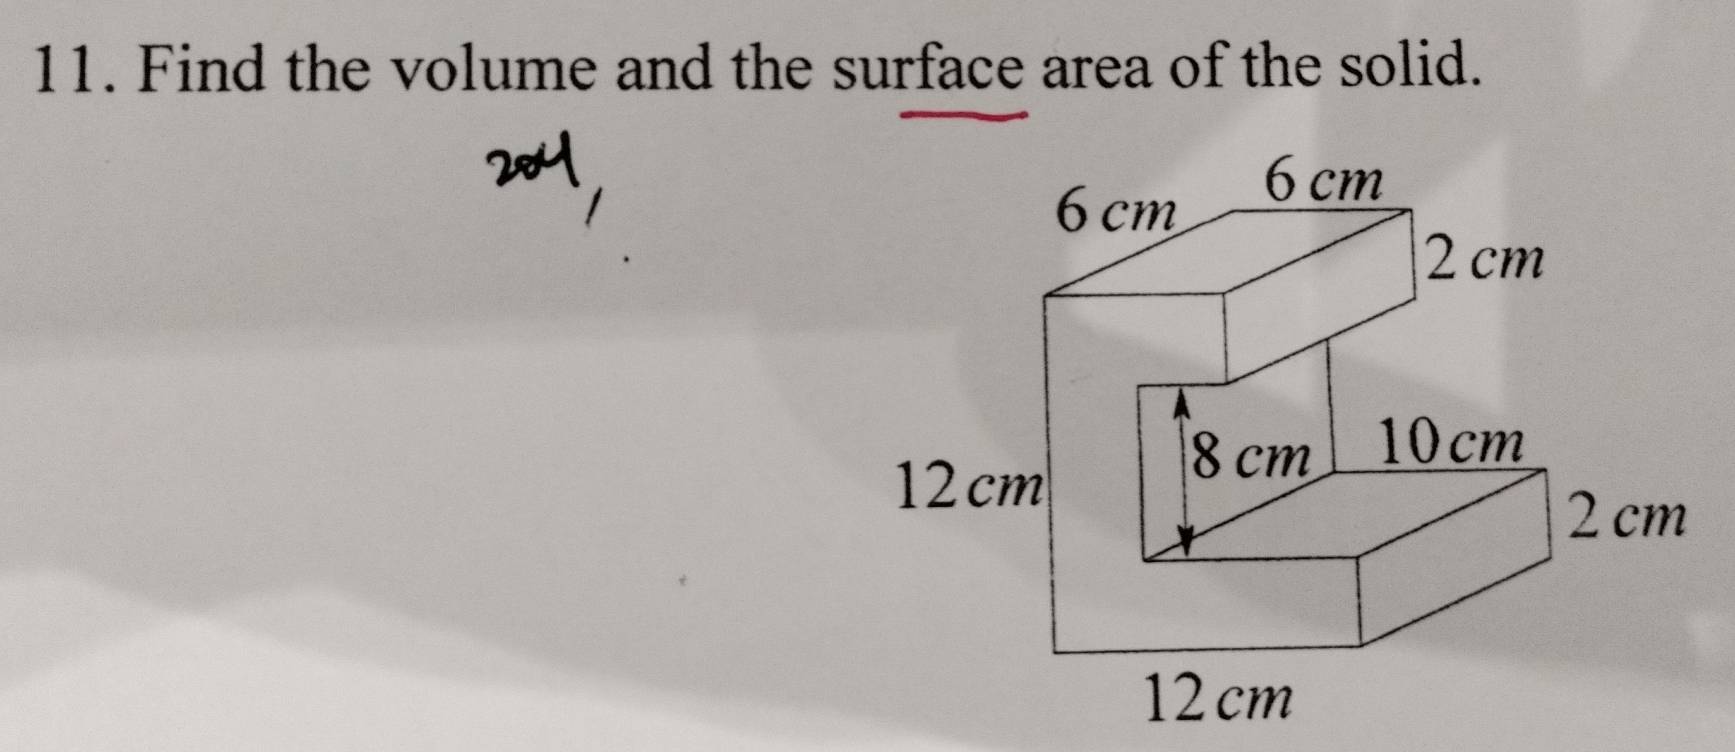 11. Find the volume and the surface area of the solid.
6 cm
6 cm
2 cm
8 cm
10 cm
12 cm
2 cm
12 cm